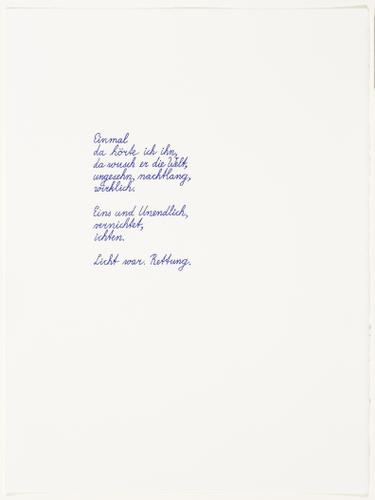 Einmal
da hörte ich ihn,
da wusch er die Welt,
ungesehn, nachtlang,
wirklich.
Eins und Unendlich,
vernichtet,
ichten.
Licht war. Rettung.